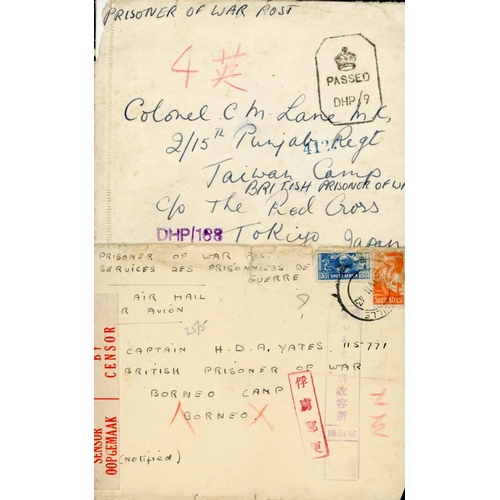 PRISONER OF WAR POST
4英
PASSED
DHP/9
Colonel C M Lane M.C,
2/15th Punjab Regt
412
Taiwan Camp
BRITISH PRISONER OF WA
c/o The Red Cross
DHP/188
Tokiyo Japan
PRISONER OF WAR
SERVICES DES PRISONNIERS DE
GUERRE
SOUTH AFRICA
SOUTH AFRICA
AIR MAIL
AVION
25/5
?
BY
CENSOR
SENSOR
OOPGEMAAK
CAPTAIN H.D.A. YATES. 115771
BRITISH PRISONER OF WAR
BORNEO CAMP
BORNEO.
俘虜郵便
収容所
(NOTIFIED)